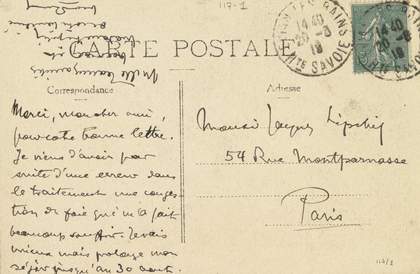 117-1
CARTE POSTALE
Correspondance
Adresse
Merci, mon cher ami,
pour votre bonne lettre.
Je viens d'avoir par
suite d'une erreur dans
le traitement une conges
tion de foie qui m'a fait
beaucoup souffrir. Je vais
mieux mais prolonge mon
séjour jusqu'au 30 août.
Monsieur Jacques Lipchitz
54 Rue Montparnasse
Paris
LES BAINS
14 40
20 - 8
18
HTE SAVOIE
14 40
20 - 8
18